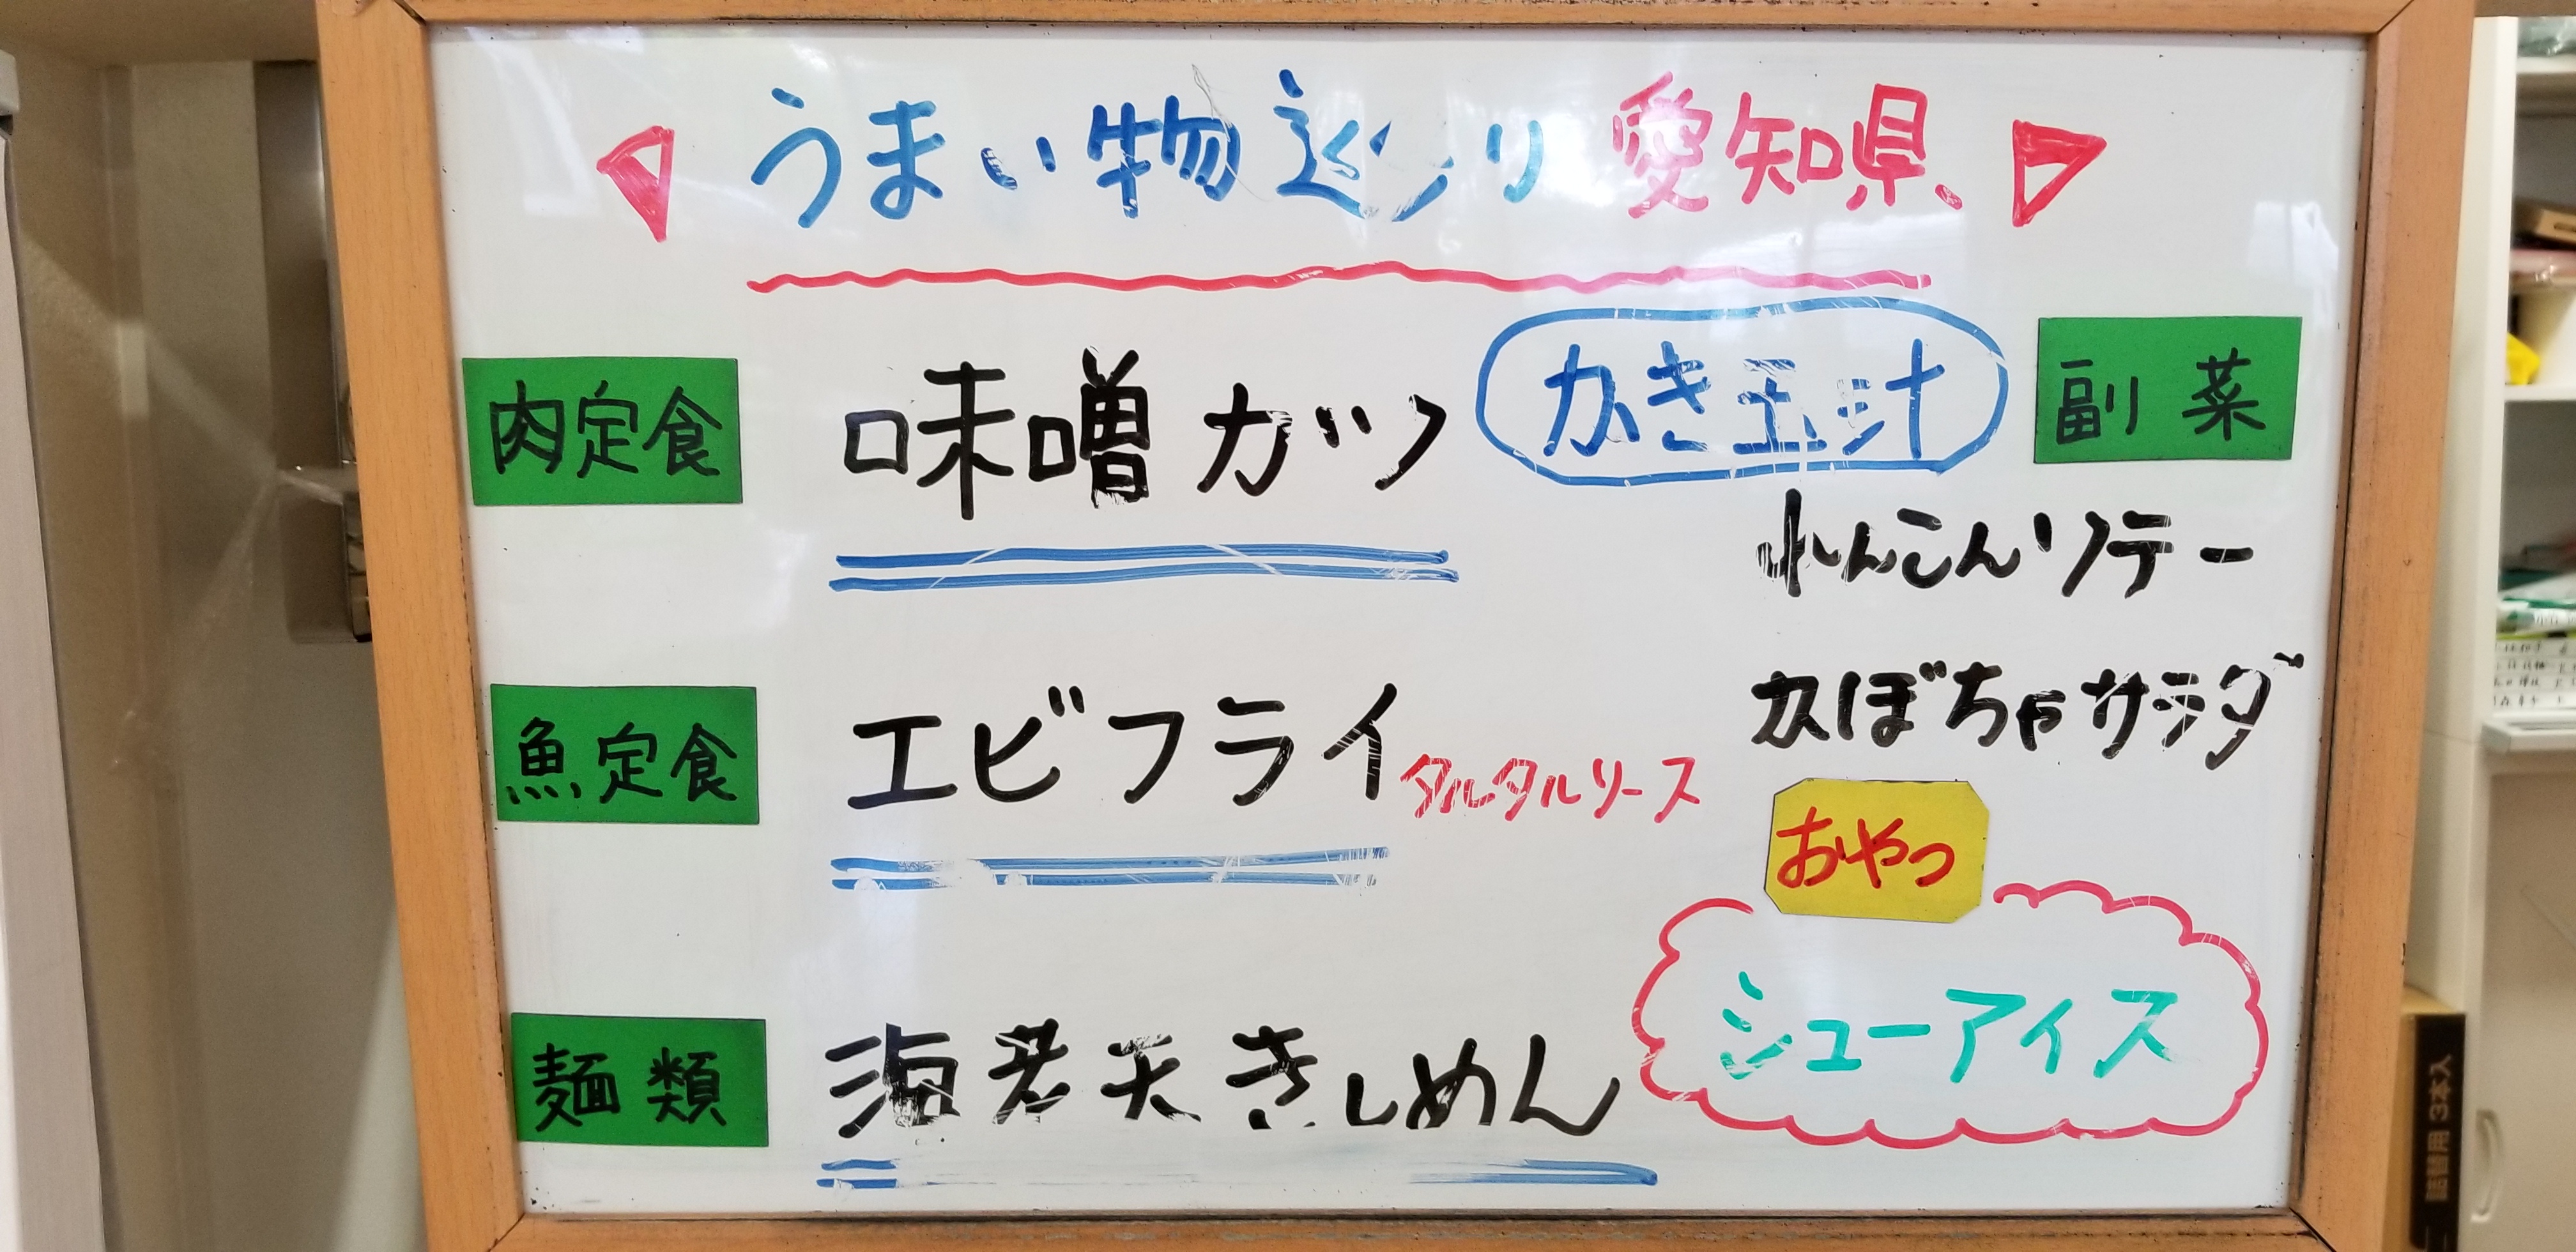 うまい物巡り 愛知県
肉定食
味噌カツ
かき玉汁
副菜
れんこんソテー
かぼちゃサラダ
魚定食
エビフライ
タルタルソース
おやつ
シューアイス
麺類
海老天きしめん
詰替用 3本入